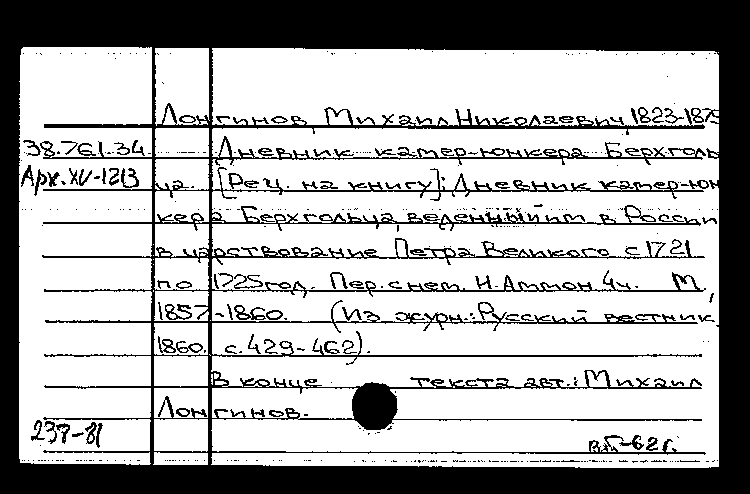 Лонгинов, Михаил Николаевич, 1823-1875
38.761.34 Дневник камер-юнкера Берхголь
Арх.XV-1213 ца. [Рец. на книгу]: Дневник камер-юн
кера Берхгольца, веденный им в России
в царствование Петра Великого с 1721
по 1725 год. Пер. с нем. Н. Аммон. 4ч. М.,
1857-1860. (Из журн.: Русский вестник,
1860. с. 429-462).
В конце текста авт.: Михаил
Лонгинов.
237-81
-62г.